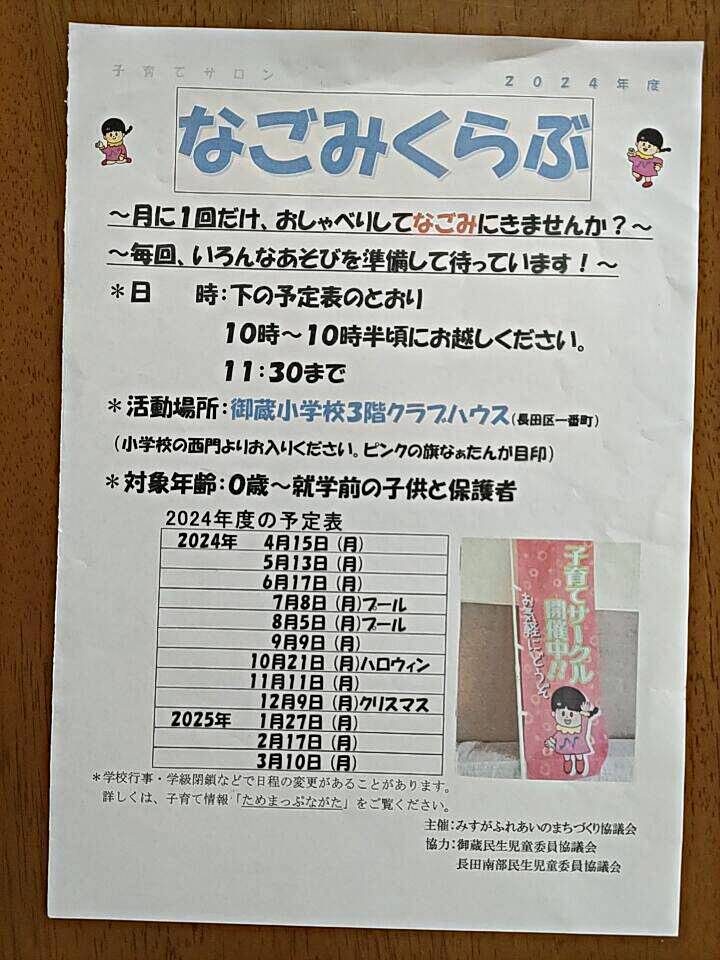 子育てサロン 2024年度
なごみくらぶ
～月に1回だけ、おしゃべりしてなごみにきませんか？～
～毎回、いろんなあそびを準備して待っています！～
＊日　時：下の予定表のとおり
10時～10時半頃にお越しください。
11：30まで
＊活動場所：御蔵小学校3階クラブハウス（長田区一番町）
（小学校の西門よりお入りください。ピンクの旗なぁたんが目印）
＊対象年齢：0歳～就学前の子供と保護者
2024年度の予定表
2024年 4月15日（月）
5月13日（月）
6月17日（月）
7月8日（月）プール
8月5日（月）プール
9月9日（月）
10月21日（月）ハロウィン
11月11日（月）
12月9日（月）クリスマス
2025年 1月27日（月）
2月17日（月）
3月10日（月）
子育てサークル
開催中!!
お気軽にどうぞ
＊学校行事・学級閉鎖などで日程の変更があることがあります。
詳しくは、子育て情報「ためまっぷながた」をご覧ください。
主催：みすがふれあいのまちづくり協議会
協力：御蔵民生児童委員協議会
長田南部民生児童委員協議会